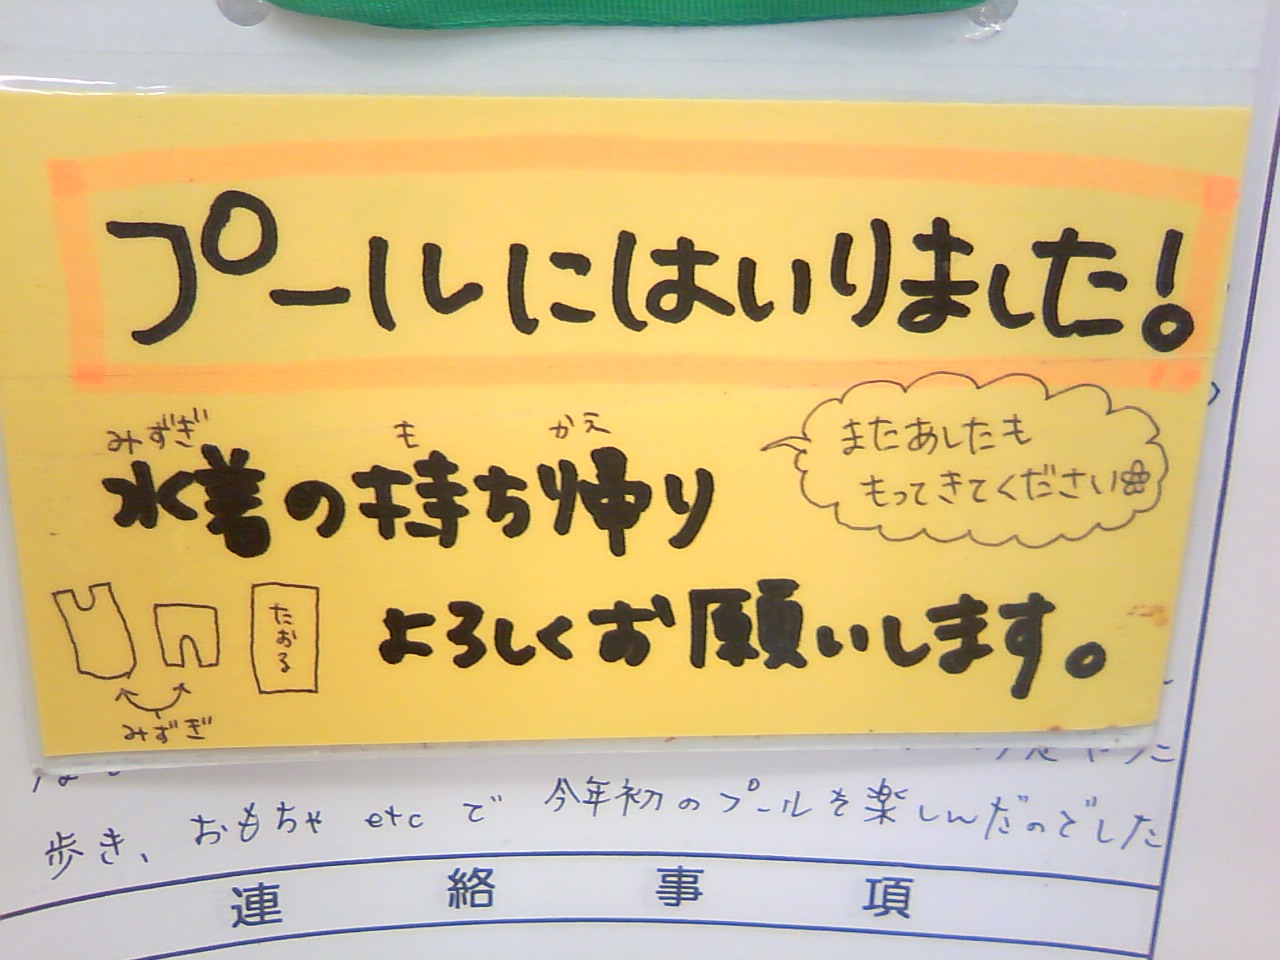 プールにはいりました!
みずぎ も かえ
水着の持ち帰り
またあしたも
もってきてください
たおる
よろしくお願いします。
みずぎ
歩き、おもちゃ etc で 今年初のプールを楽しんだのでした
連絡事項